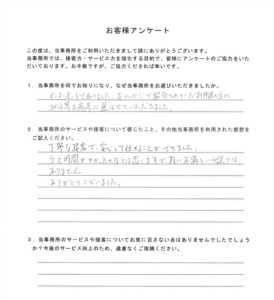 お客様アンケート
この度は、当事務所をご利用いただきまして誠にありがとうございます。
当事務所では、接客力・サービス力を強化する目的で、皆様にアンケートのご協力をいた
だいております。お手数ですが、ご協力くだされば幸いです。
1．当事務所を何でお知りになり、なぜ当事務所をお選びいただきましたか。
インターネットで知りました。
させていただきました。
2．当事務所のサービスや接客について感じたこと、その他当事務所を利用された感想を
ご記入ください。
丁寧な接客で、安心して任せることができました。
少々時間がかかったかなとは思いますが、特に不満という訳では
ありません。
ありがとうございました。
3．当事務所のサービスや接客についてお気に召さない点はありませんでしたでしょう
か？今後のサービス向上のため、遠慮なくご指摘ください。